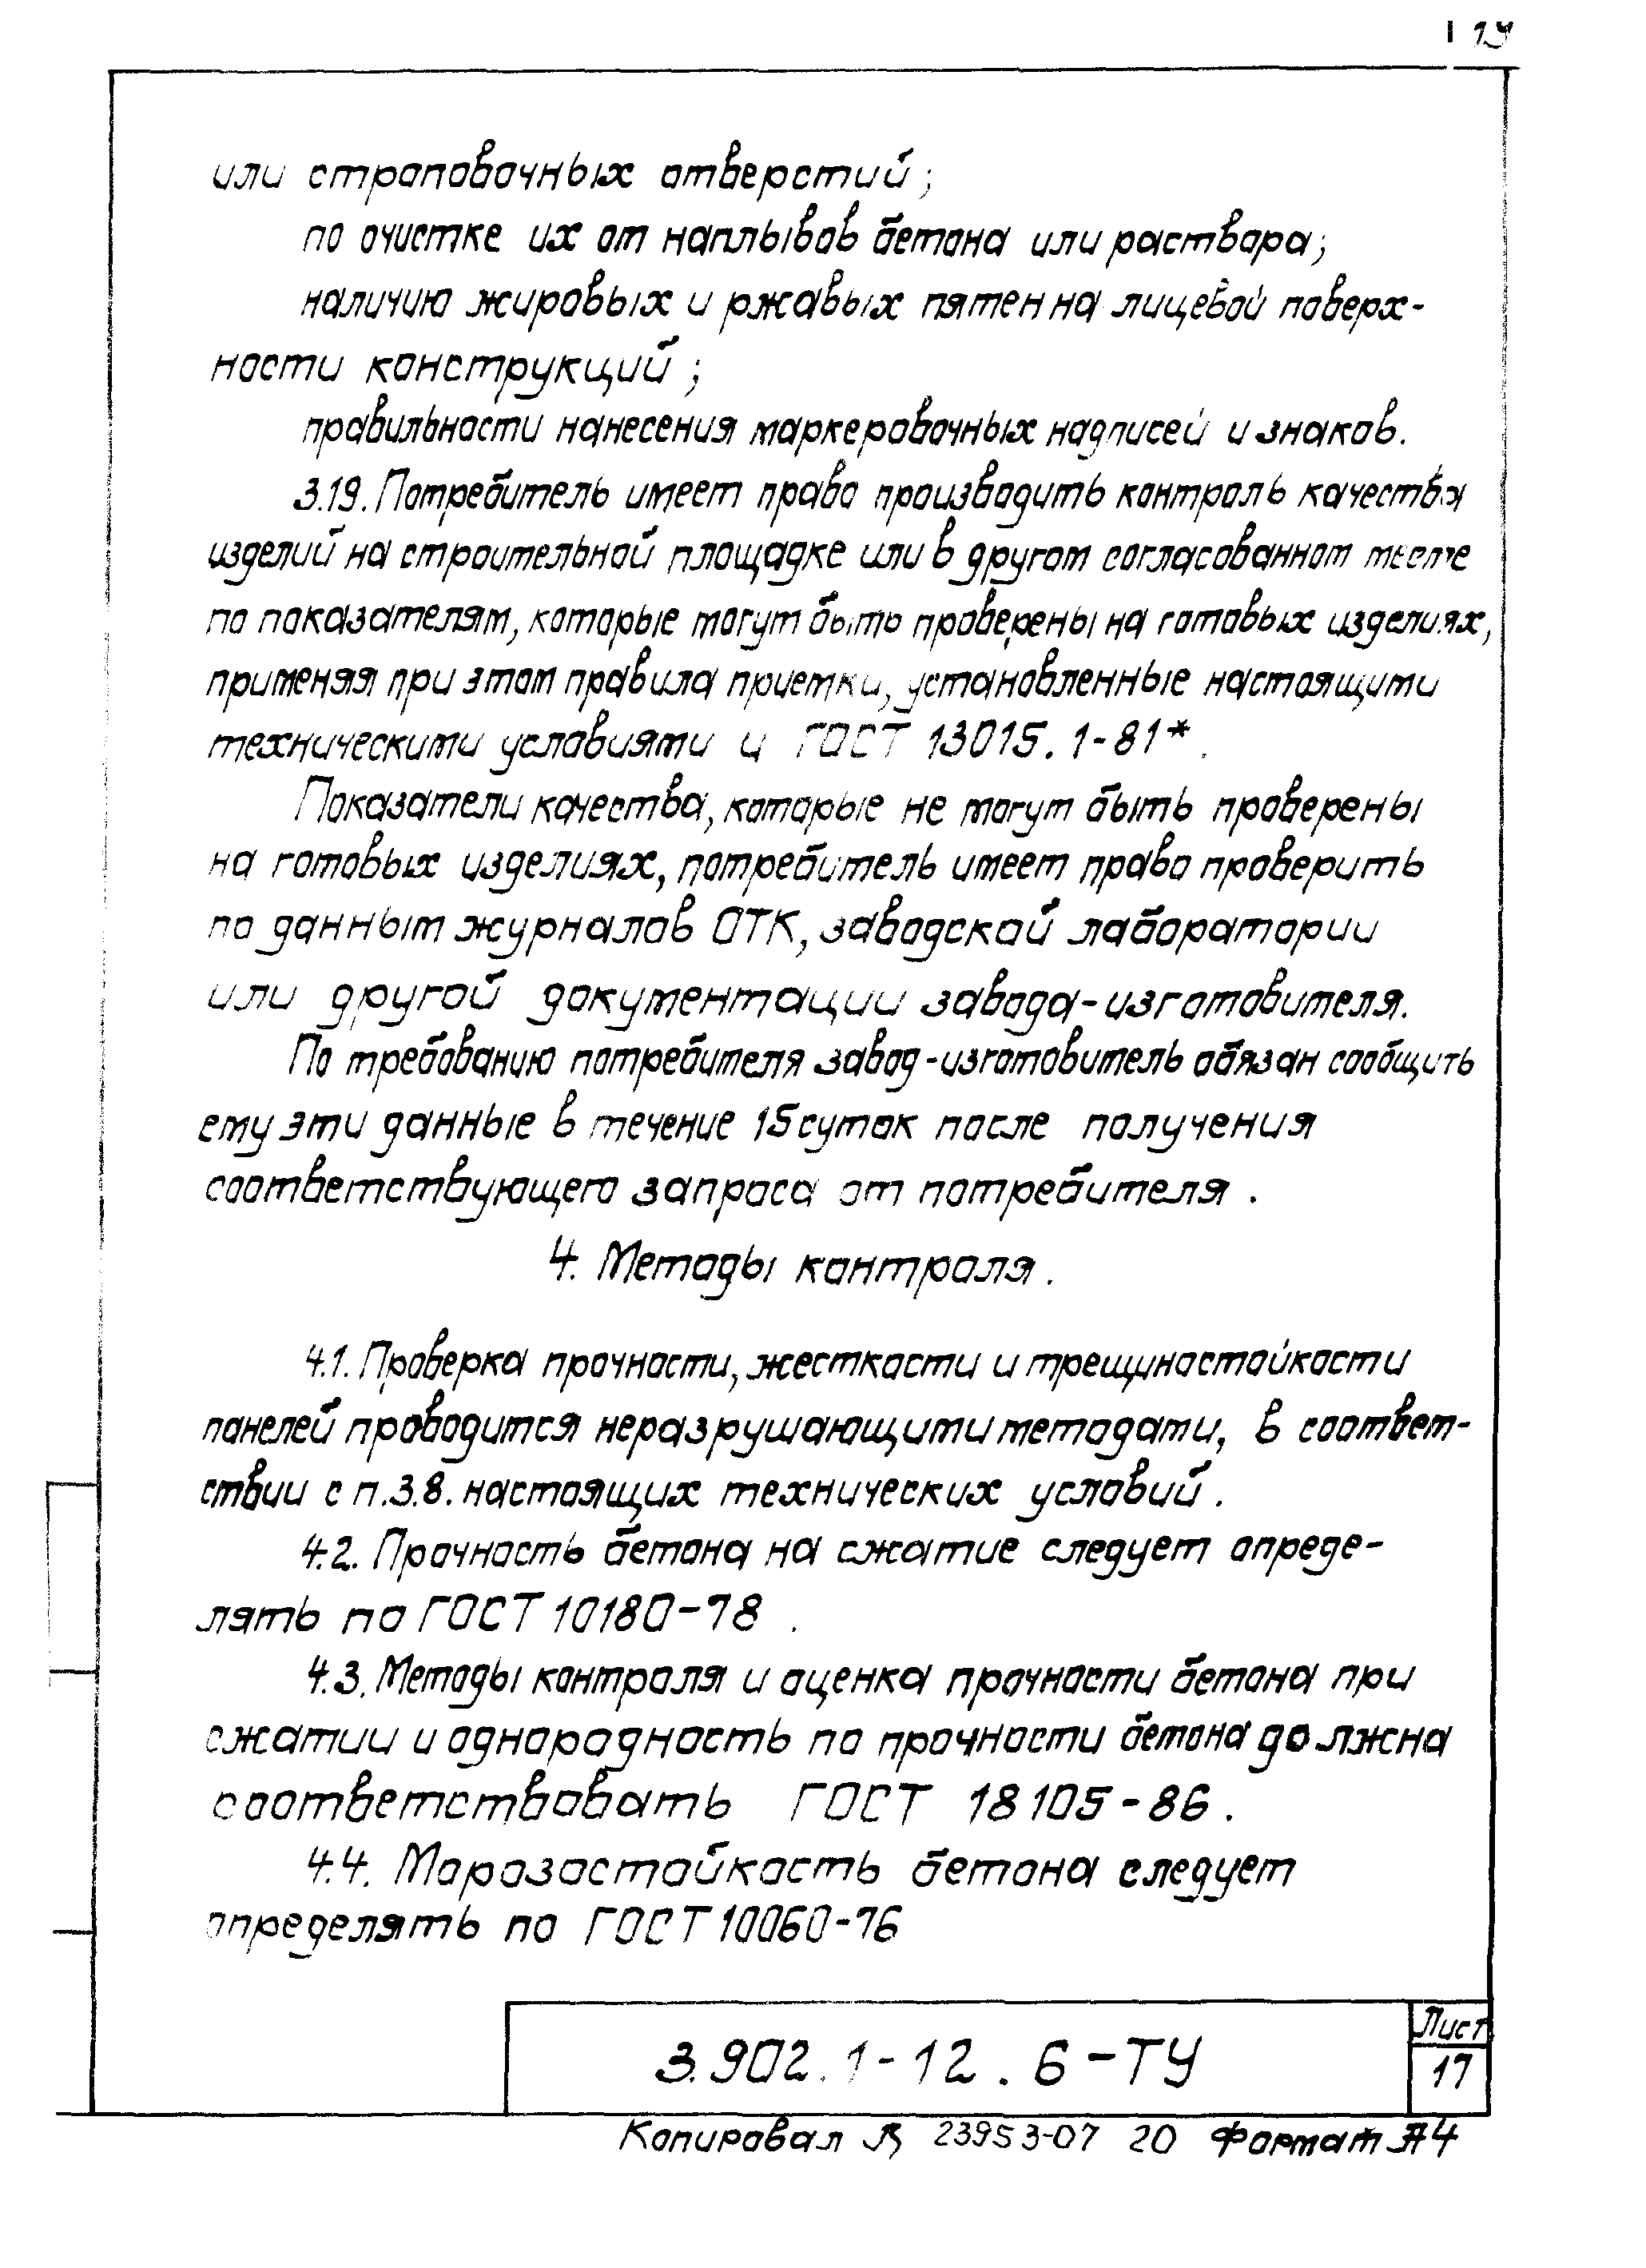 19
или строповочных отверстий;
по очистке их от наплывов бетона или раствора;
наличию жировых и ржавых пятен на лицевой поверх-
ности конструкций;
правильности нанесения маркеровочных надписей и знаков.
3.19. Потребитель имеет право производить контроль качества
изделий на строительной площадке или в другом согласованном месте
по показателям, которые могут быть проверены на готовых изделиях,
применяя при этом правила приемки, установленные настоящими
техническими условиями и ГОСТ 13015.1-81*.
Показатели качества, которые не могут быть проверены
на готовых изделиях, потребитель имеет право проверить
по данным журналов ОТК, заводской лаборатории
или другой документации завода-изготовителя.
По требованию потребителя завод-изготовитель обязан сообщить
ему эти данные в течение 15 суток после получения
соответствующего запроса от потребителя.
4. Методы контроля.
4.1. Проверка прочности, жесткости и трещиностойкости
панелей проводится неразрушающими методами, в соответ-
ствии с п.3.8. настоящих технических условий.
4.2. Прочность бетона на сжатие следует опреде-
лять по ГОСТ 10180-78.
4.3. Методы контроля и оценка прочности бетона при
сжатии и однородность по прочности бетона должна
соответствовать ГОСТ 18105-86.
4.4. Морозостойкость бетона следует
определять по ГОСТ 10060-76
3.902.1-12.6-ТУ
Лист
17
Копировал 23953-07 20 Формат А4